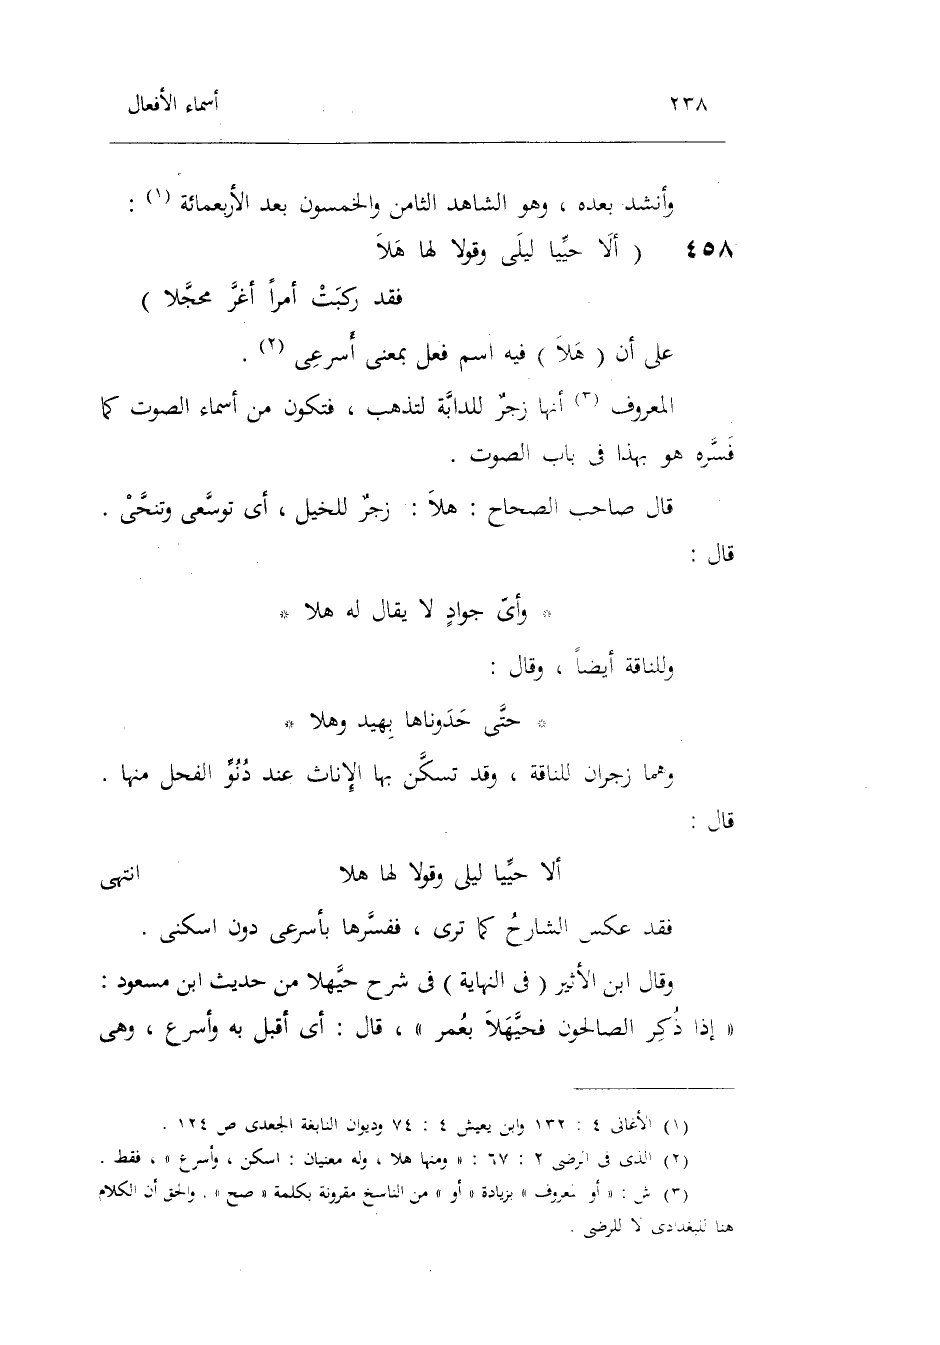 ٢٣٨ أسماء الأفعال
وأنشد بعده ، وهو الشاهد الثامن والخمسون بعد الأربعمائة (١) :
٤٥٨ ( ألَا حيِّيا ليلَى وقولا لها هَلاَ
فقد ركبَتْ أمراً أغرَّ محجَّلا )
على أن ( هَلاَ ) فيه اسم فعل بمعنى أَسرعِى (٢) .
المعروف (٣) أنها زجرٌ للدابَّة لتذهب ، فتكون من أسماء الصوت كما
فَسَّره هو بهذا فى باب الصوت .
قال صاحب الصحاح : هلاَ : زجرٌ للخيل ، أى توسَّعى وتنحَّىْ .
قال :
* وأىّ جوادٍ لا يقال له هلا *
وللناقة أيضاً ، وقال :
* حتَّى حَدَوناها بِهيد وهلا *
وهما زجران للناقة ، وقد تسكَّن بها الإناث عند دُنُوِّ الفحل منها .
قال :
ألا حيِّيا ليلى وقولا لها هلا انتهى
فقد عكس الشارحُ كما ترى ، ففسَّرها بأسرعى دون اسكنى .
وقال ابن الأثير ( فى النهاية ) فى شرح حيَّهلا من حديث ابن مسعود :
« إذا ذُكِر الصالحون فحيَّهَلاَ بعُمر » ، قال : أى أقبل به وأسرع ، وهى
(١) الأغانى ٤ : ١٣٢ وابن يعيش ٤ : ٧٤ وديوان النابغة الجعدى ص ١٢٤ .
(٢) الذى فى الرضى ٢ : ٦٧ : « ومنها هلا ، وله معنيان : اسكن ، وأسرع » ، فقط .
(٣) ش : « أو المعروف » بزيادة « أو » من الناسخ مقرونة بكلمة « صح » . والحق أن الكلام
هنا للبغدادى لا للرضى .